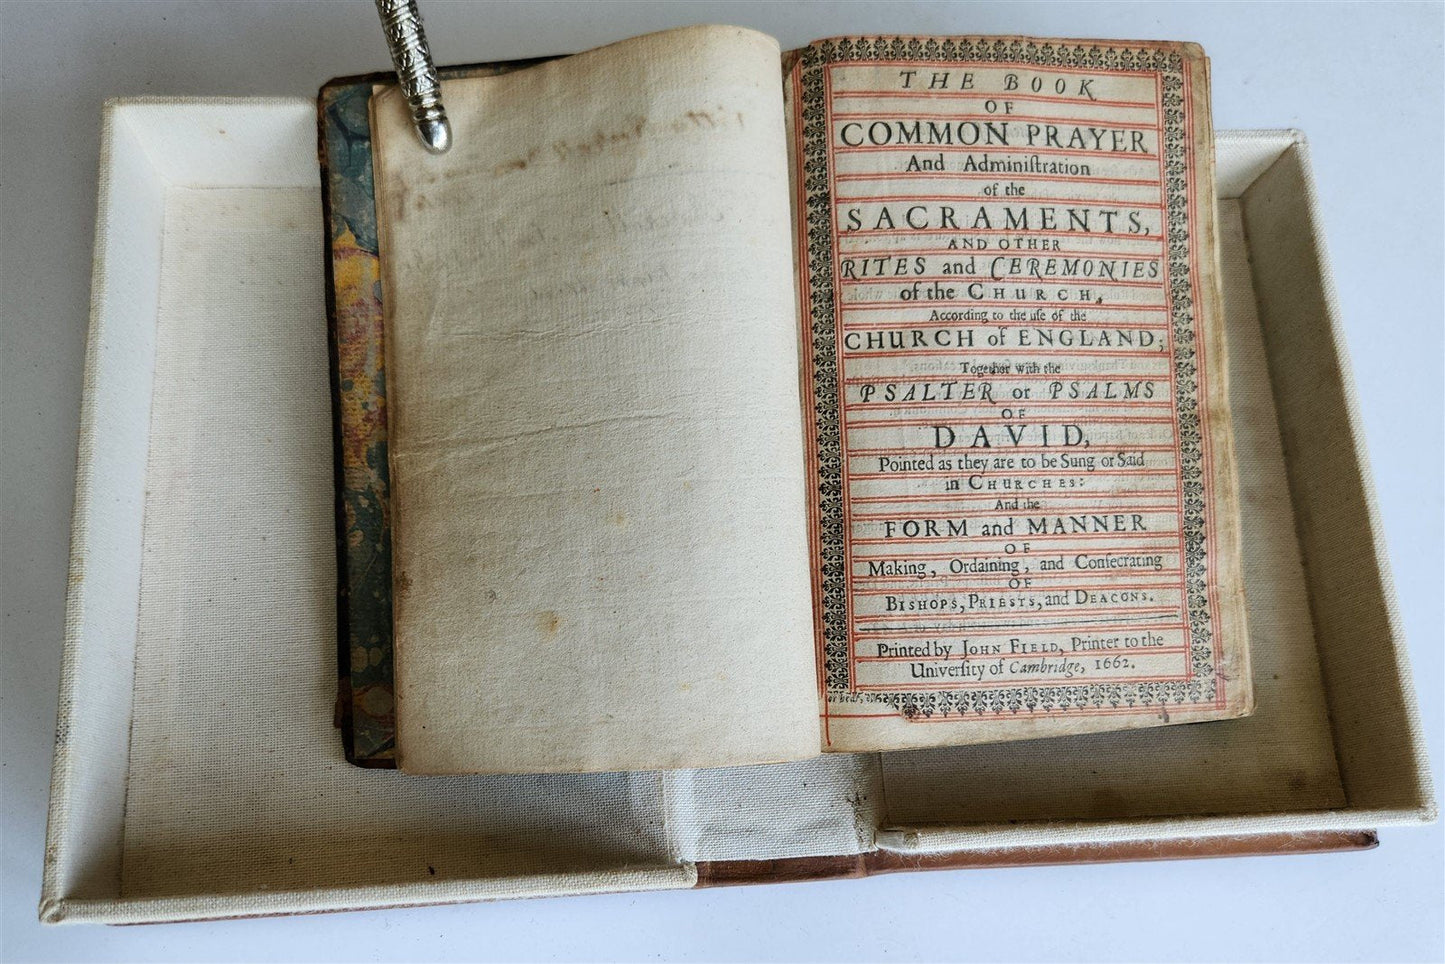 THE BOOK
OF
COMMON PRAYER
And Adminiſtration
of the
SACRAMENTS,
AND OTHER
RITES and CEREMONIES
of the CHURCH,
According to the uſe of the
CHURCH of ENGLAND;
Together with the
PSALTER or PSALMS
OF
DAVID,
Pointed as they are to be Sung or Said
in CHURCHES:
And the
FORM and MANNER
OF
Making, Ordaining, and Conſecrating
OF
BISHOPS, PRIESTS, and DEACONS.
Printed by JOHN FIELD, Printer to the
Univerſity of Cambridge, 1662.